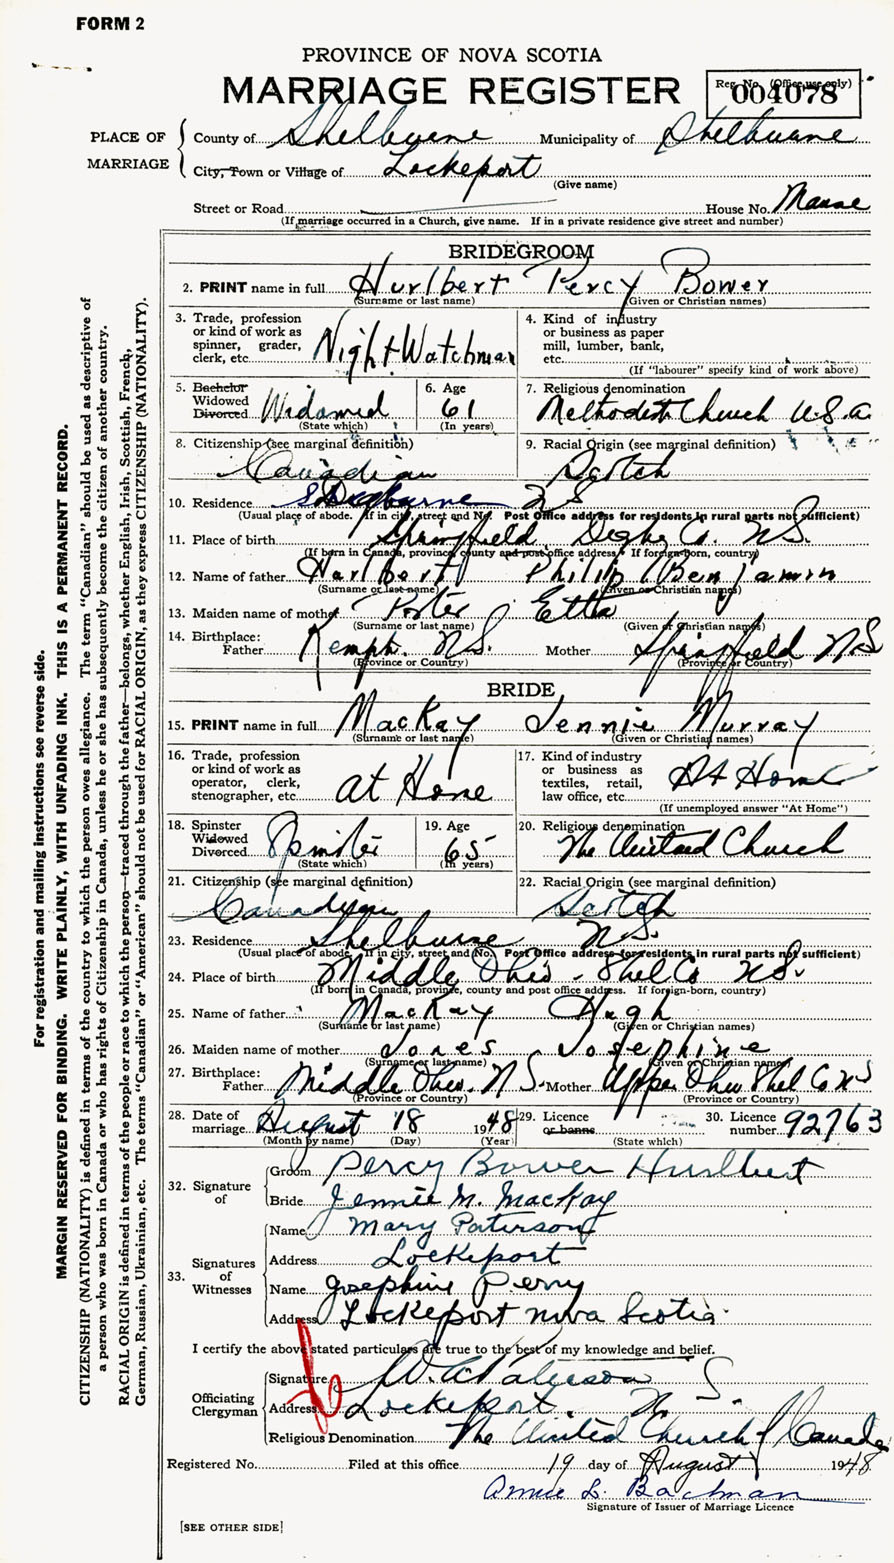 FORM 2
PROVINCE OF NOVA SCOTIA
MARRIAGE REGISTER
Reg. No. (Office use only)
004078
PLACE OF MARRIAGE
County of Shelburne Municipality of Shelburne
City, Town or Village of Lockeport
(Give name)
Street or Road House No. Manse
(If marriage occurred in a Church, give name. If in a private residence give street and number)
BRIDEGROOM
2. PRINT name in full Hurlbert Percy Bower
(Surname or last name) (Given or Christian names)
3. Trade, profession or kind of work as spinner, grader, clerk, etc. Night Watchman
4. Kind of industry or business as paper mill, lumber, bank, etc.
(If "labourer" specify kind of work above)
5. Bachelor Widowed Divorced Widowed
(State which)
6. Age 61
(In years)
7. Religious denomination
Methodist Church U.S.A.
8. Citizenship (see marginal definition)
Canadian
9. Racial Origin (see marginal definition)
Scotch
10. Residence Shelburne N S
(Usual place of abode. If in city, street and No. Post Office address for residents in rural parts not sufficient)
11. Place of birth Springfield Digby Co. N.S.
(If born in Canada, province, county and post office address. If foreign-born, country)
12. Name of father Hurlbert Philip Benjamin
(Surname or last name) (Given or Christian names)
13. Maiden name of mother Porter Etta
(Surname or last name) (Given or Christian names)
14. Birthplace:
Father Kempt. N.S. Mother Springfield N S
(Province or Country) (Province or Country)
BRIDE
15. PRINT name in full MacKay Jennie Murray
(Surname or last name) (Given or Christian names)
16. Trade, profession or kind of work as operator, clerk, stenographer, etc. at Home
17. Kind of industry or business as textiles, retail, law office, etc. At Home
(If unemployed answer "At Home")
18. Spinster Widowed Divorced Spinster
(State which)
19. Age 65
(In years)
20. Religious denomination
The United Church
21. Citizenship (see marginal definition)
Canadian
22. Racial Origin (see marginal definition)
Scotch
23. Residence Shelburne N.S.
(Usual place of abode. If in city, street and No. Post Office address for residents in rural parts not sufficient)
24. Place of birth Middle Ohio. Shel Co N.S.
(If born in Canada, province, county and post office address. If foreign-born, country)
25. Name of father MacKay Hugh
(Surname or last name) (Given or Christian names)
26. Maiden name of mother Jones Josephine
(Surname or last name) (Given or Christian names)
27. Birthplace:
Father Middle Ohio. N S. Mother Upper Ohio Shel Co N S
(Province or Country) (Province or Country)
28. Date of marriage August 18 1948
(Month by name) (Day) (Year)
29. Licence or banns
(State which)
30. Licence number 92763
32. Signature of
Groom Percy Bower Hurlbert
Bride Jennie M. MacKay
33. Signatures of Witnesses
Name Mary Paterson
Address Lockeport
Name Josephine Perry
Address Lockeport Nova Scotia
I certify the above stated particulars are true to the best of my knowledge and belief.
Officiating Clergyman
Signature Paterson
Address Lockeport. N S.
Religious Denomination The United Church of Canada
Registered No. Filed at this office 19 day of August 1948
Annie L. Bachman
Signature of Issuer of Marriage Licence
[SEE OTHER SIDE]
For registration and mailing instructions see reverse side.
MARGIN RESERVED FOR BINDING. WRITE PLAINLY, WITH UNFADING INK. THIS IS A PERMANENT RECORD.
CITIZENSHIP (NATIONALITY) is defined in terms of the country to which the person owes allegiance. The term "Canadian" should be used as descriptive of
a person who was born in Canada or who has rights of Citizenship in Canada, unless he or she has subsequently become the citizen of another country.
RACIAL ORIGIN is defined in terms of the people or race to which the person—traced through the father—belongs, whether English, Irish, Scottish, French,
German, Russian, Ukrainian, etc. The terms "Canadian" or "American" should not be used for RACIAL ORIGIN, as they express CITIZENSHIP (NATIONALITY).